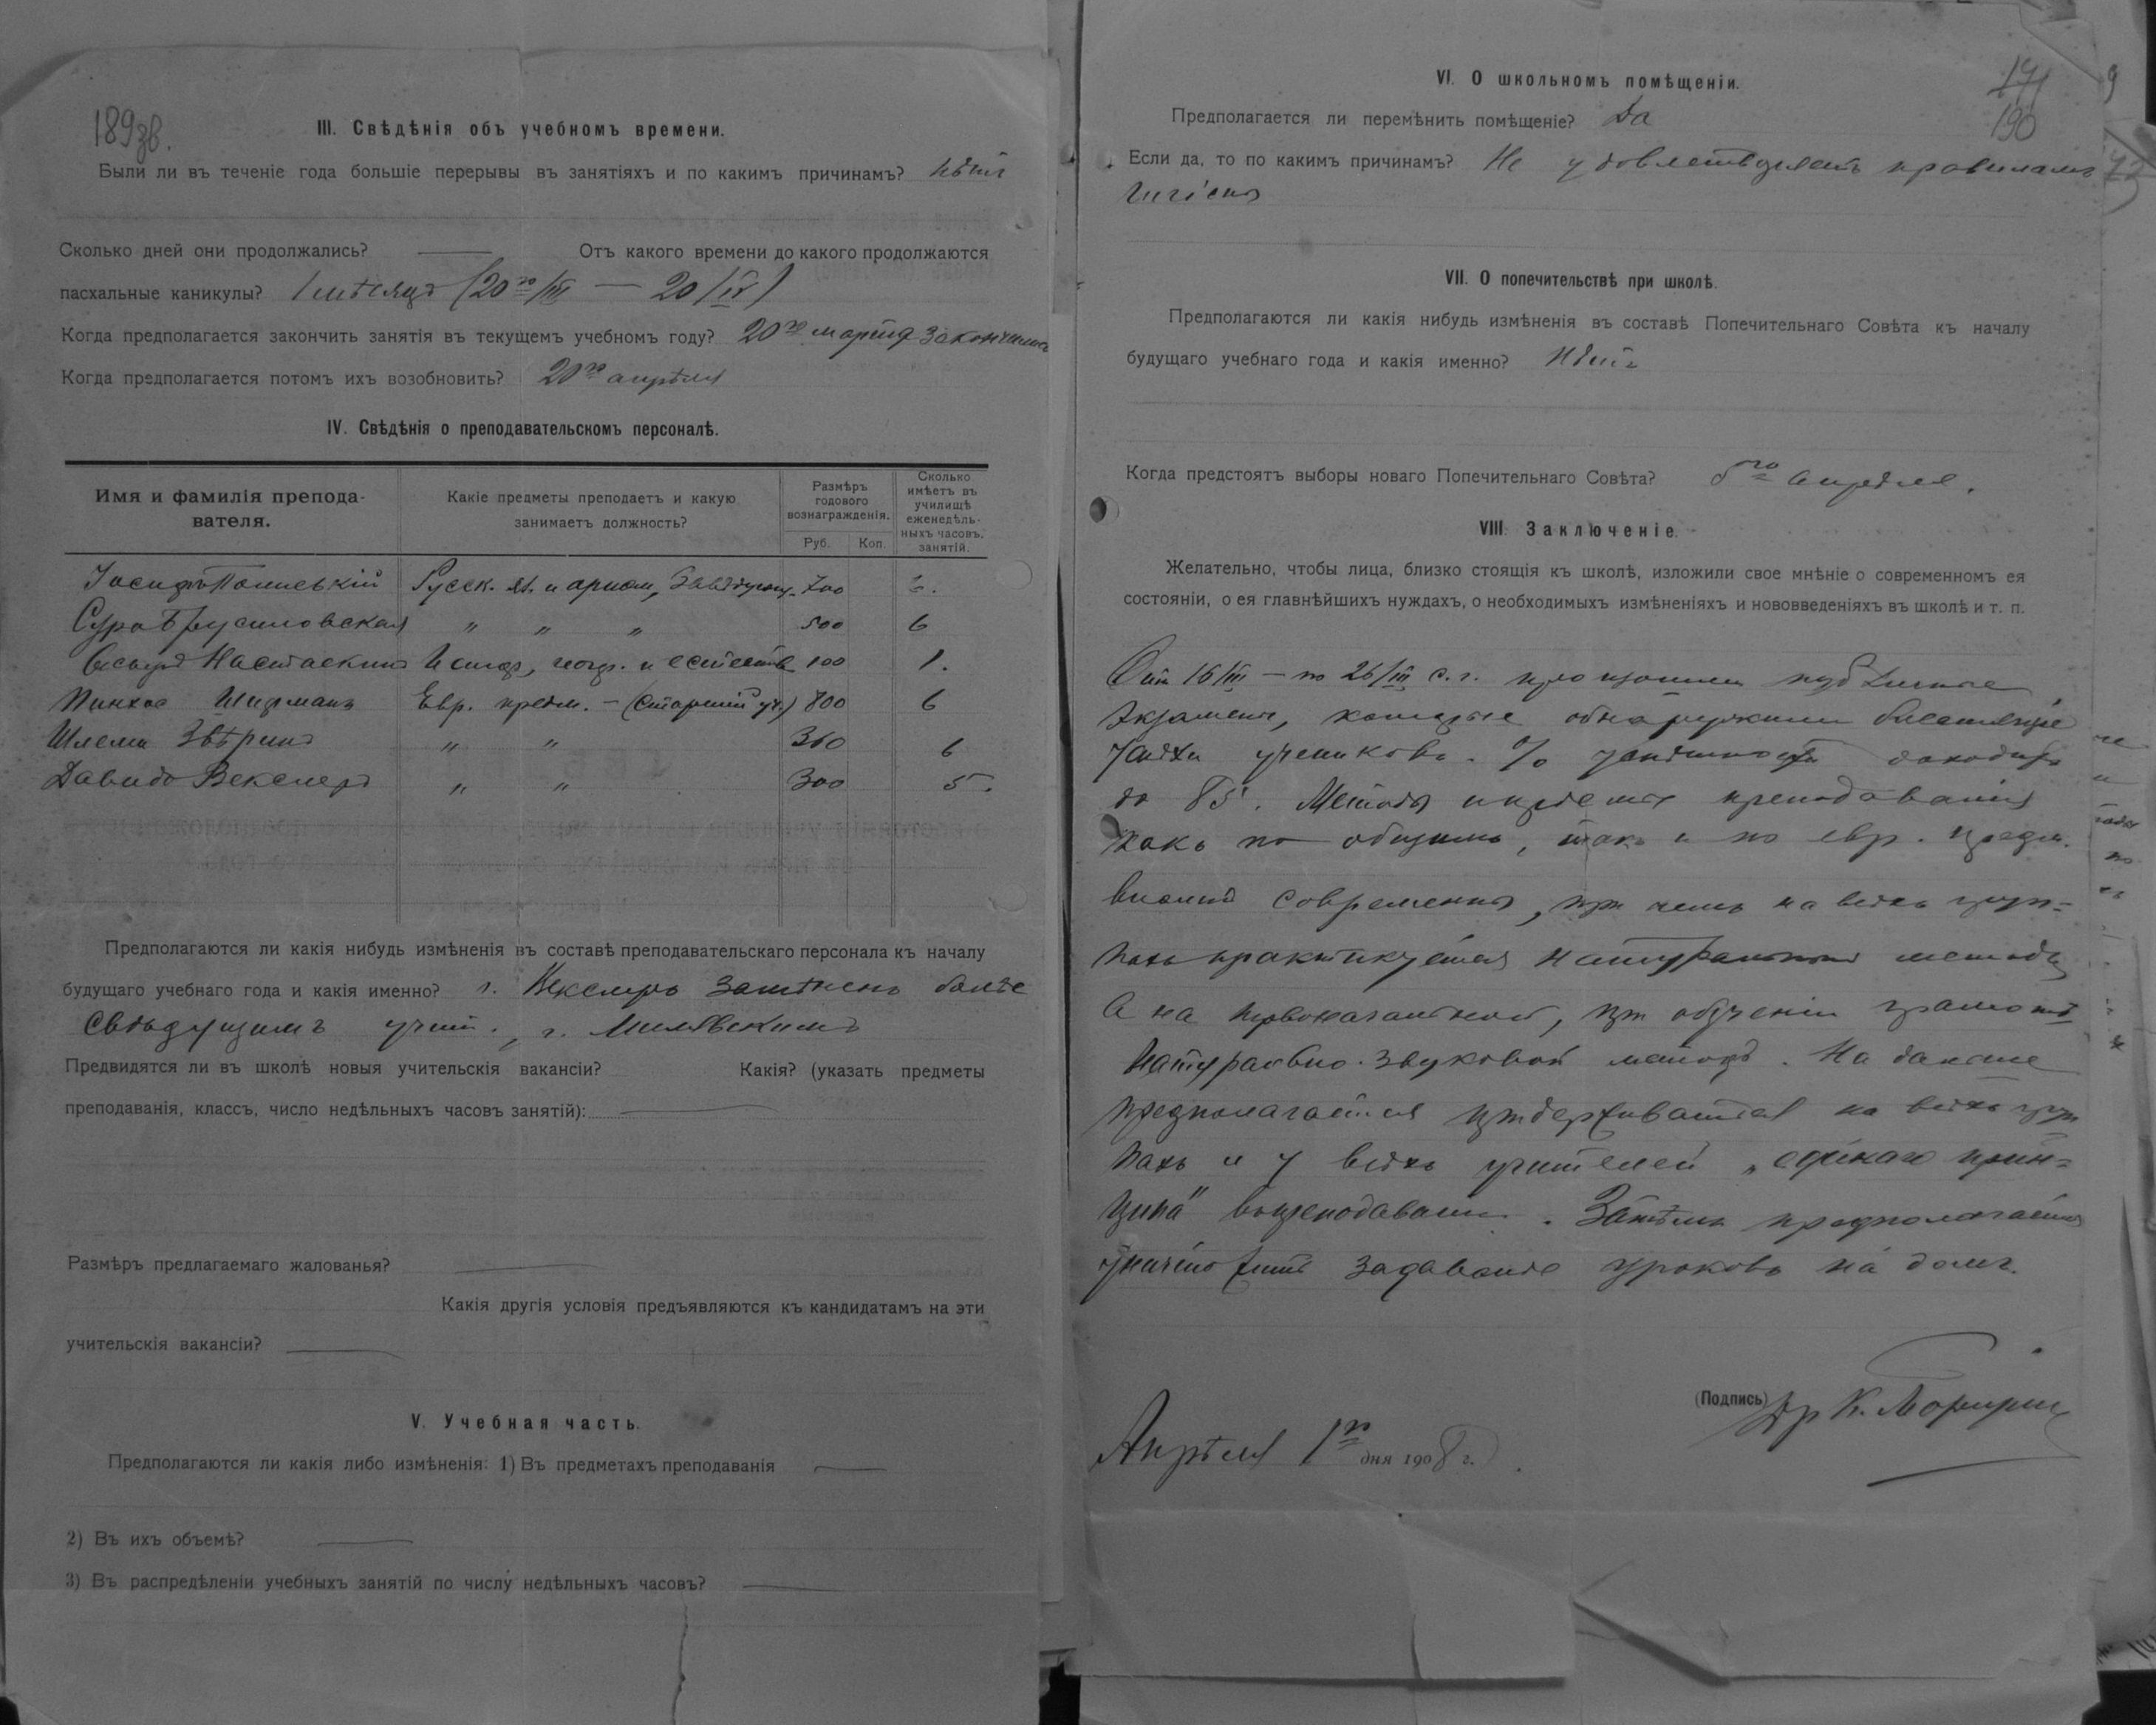 189зв.
III. Свѣдѣнія объ учебномъ времени.
Были ли въ теченіе года большіе перерывы въ занятіяхъ и по какимъ причинамъ? нѣтъ
Сколько дней они продолжались? — Отъ какого времени до какого продолжаются
пасхальные каникулы? 1 мѣсяцъ (20го/III — 20/IV)
Когда предполагается закончить занятія въ текущемъ учебномъ году? 20го марта закончились
Когда предполагается потомъ ихъ возобновить? 20го апрѣля
IV. Свѣдѣнія о преподавательскомъ персоналѣ.
Имя и фамилія препода-
вателя.
Какіе предметы преподаетъ и какую
занимаетъ должность?
Размѣръ
годового
вознагражденія.
Руб. Коп.
Сколько
имѣетъ въ
училищѣ
еженедѣль-
ныхъ часовъ.
занятій.
Іосифъ Русск. яз. и ариѳм., Завѣдующ. 700
Сура Брусиловская " " " 500 6
Настаскинъ Истор., геогр. и естеств. 100 1.
Пинхос Шифманъ Евр. предм. — (старшій уч.) 800 6
Шлема Звѣринъ " " 360 6
Давидъ Векслеръ " " 300 5.
Предполагаются ли какія нибудь измѣненія въ составѣ преподавательскаго персонала къ началу
будущаго учебнаго года и какія именно? г. Векслеръ замѣненъ болѣе
свѣдущимъ учит., г. Милявскимъ
Предвидятся ли въ школѣ новыя учительскія вакансіи? Какія? (указать предметы
преподаванія, классъ, число недѣльныхъ часовъ занятій): —
Размѣръ предлагаемаго жалованья? —
Какія другія условія предъявляются къ кандидатамъ на эти
учительскія вакансіи? —
V. Учебная часть.
Предполагаются ли какія либо измѣненія: 1) Въ предметахъ преподаванія —
2) Въ ихъ объемѣ? —
3) Въ распредѣленіи учебныхъ занятій по числу недѣльныхъ часовъ? —
VI. О школьномъ помѣщеніи.
190
Предполагается ли перемѣнить помѣщеніе? Да
Если да, то по какимъ причинамъ? Не удовлетворяетъ правиламъ
гигіены
VII. О попечительствѣ при школѣ.
Предполагаются ли какія нибудь измѣненія въ составѣ Попечительнаго Совѣта къ началу
будущаго учебнаго года и какія именно? Нѣтъ
Когда предстоятъ выборы новаго Попечительнаго Совѣта? апрѣля.
VIII. Заключеніе.
Желательно, чтобы лица, близко стоящія къ школѣ, изложили свое мнѣніе о современномъ ея
состояніи, о ея главнѣйшихъ нуждахъ, о необходимыхъ измѣненіяхъ и нововведеніяхъ въ школѣ и т. п.
Отъ 16/III — по 26/III с. г. произошли публичные
экзамены, которые обнаружили блестящіе
успѣхи учениковъ. % успѣшности доходитъ
до 85. Методы и пріемы преподаванія
какъ по общимъ, такъ и по евр. предм.
вполнѣ современны, при чемъ на всѣхъ груп-
пахъ практикуется натуральный методъ
а на первоначальной, при обученіи грамотѣ
натурально-звуковой методъ. На дальше
предполагается придерживаться на всѣхъ груп
пахъ и у всѣхъ учителей „единаго прин-
ципа" въ преподаваніи. Затѣмъ предполагается
уничтожить задаваніе уроковъ на домъ.
(Подпись) Др К.
Апрѣля 1го дня 1908 г.